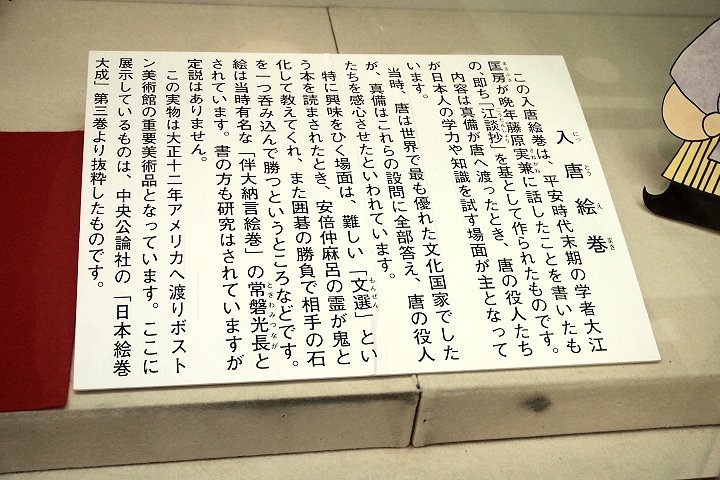 入唐絵巻
この入唐絵巻は、平安時代末期の学者大江
匡房が晩年藤原実兼に話したことを書いたも
の、即ち「江談抄」を基として作られたものです。
内容は真備が唐へ渡ったとき、唐の役人たち
が日本人の学力や知識を試す場面が主となって
います。
当時、唐は世界で最も優れた文化国家でした
が、真備はこれらの設問に全部答え、唐の役人
たちを感心させたといわれています。
特に興味をひく場面は、難しい「文選」とい
う本を読まされたとき、安倍仲麻呂の霊が鬼と
化して教えてくれ、また囲碁の勝負で相手の石
を一つ呑み込んで勝つというところなどです。
絵は当時有名な「伴大納言絵巻」の常磐光長と
されています。書の方も研究はされていますが
定説はありません。
この実物は大正十二年アメリカへ渡りボスト
ン美術館の重要美術品となっています。ここに
展示しているものは、中央公論社の「日本絵巻
大成」第三巻より抜粋したものです。